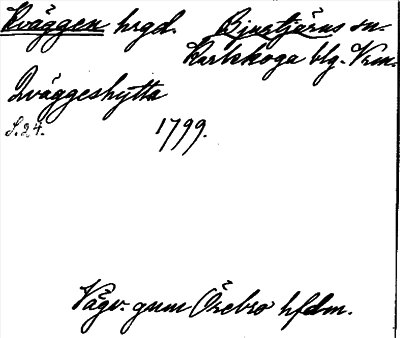 Kväggen hrgd. Bjurtjärns sn.
Karlskoga blg. Vrm.
Qväggeshytta
S. 24. 1799.
Vägv. genm Örebro hfdm.